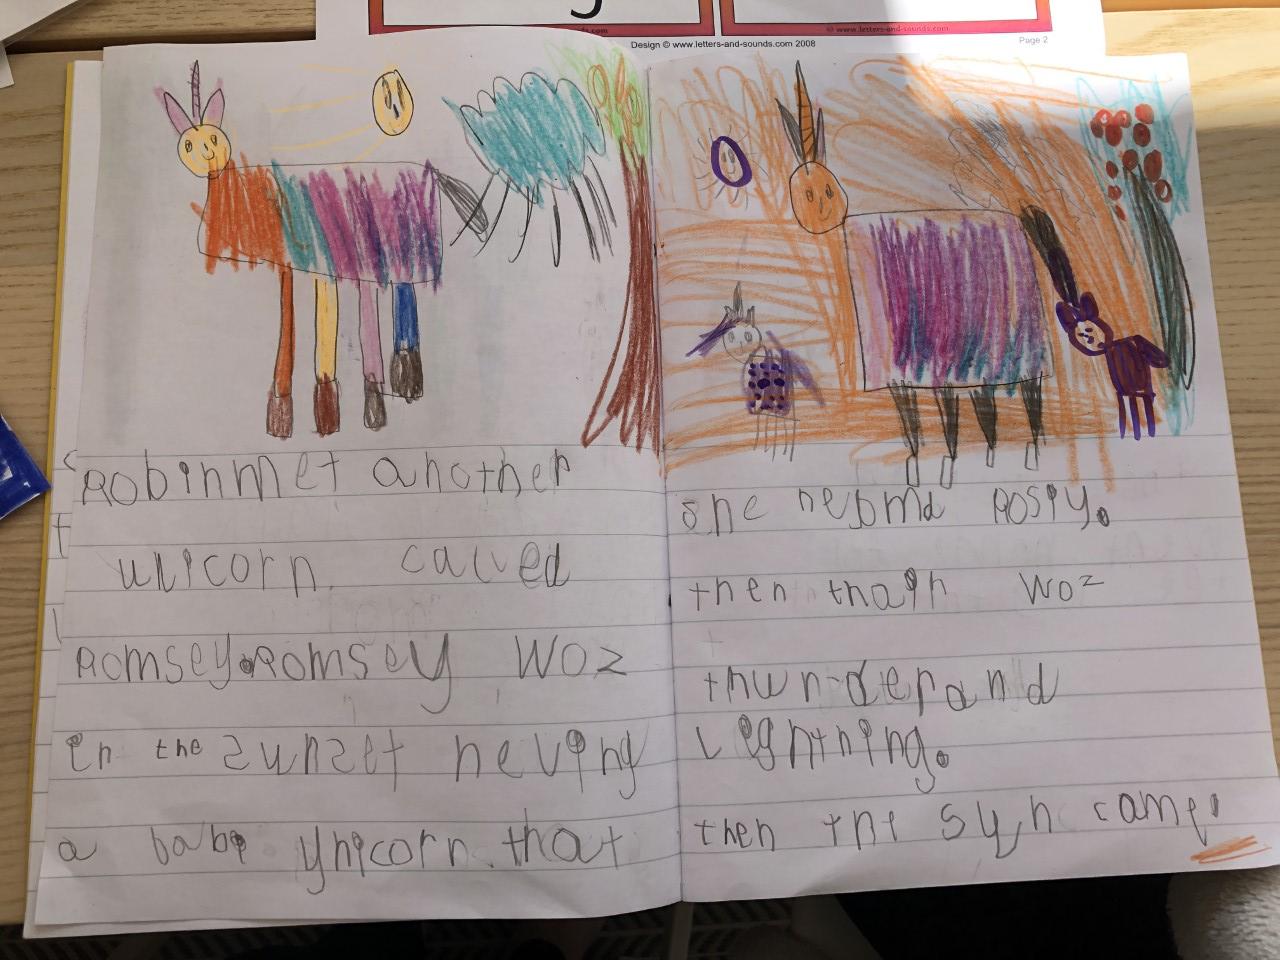 © www.letters-and-sounds.com
Design © www.letters-and-sounds.com 2008
Page 2
Robinmet another
unicorn. called
Romsey.Romsey woz
in the sunset heving
a babi ynicorn.that
she nebmd Rosiy.
then thair woz
thwnderand
leightning.
then the syn came.